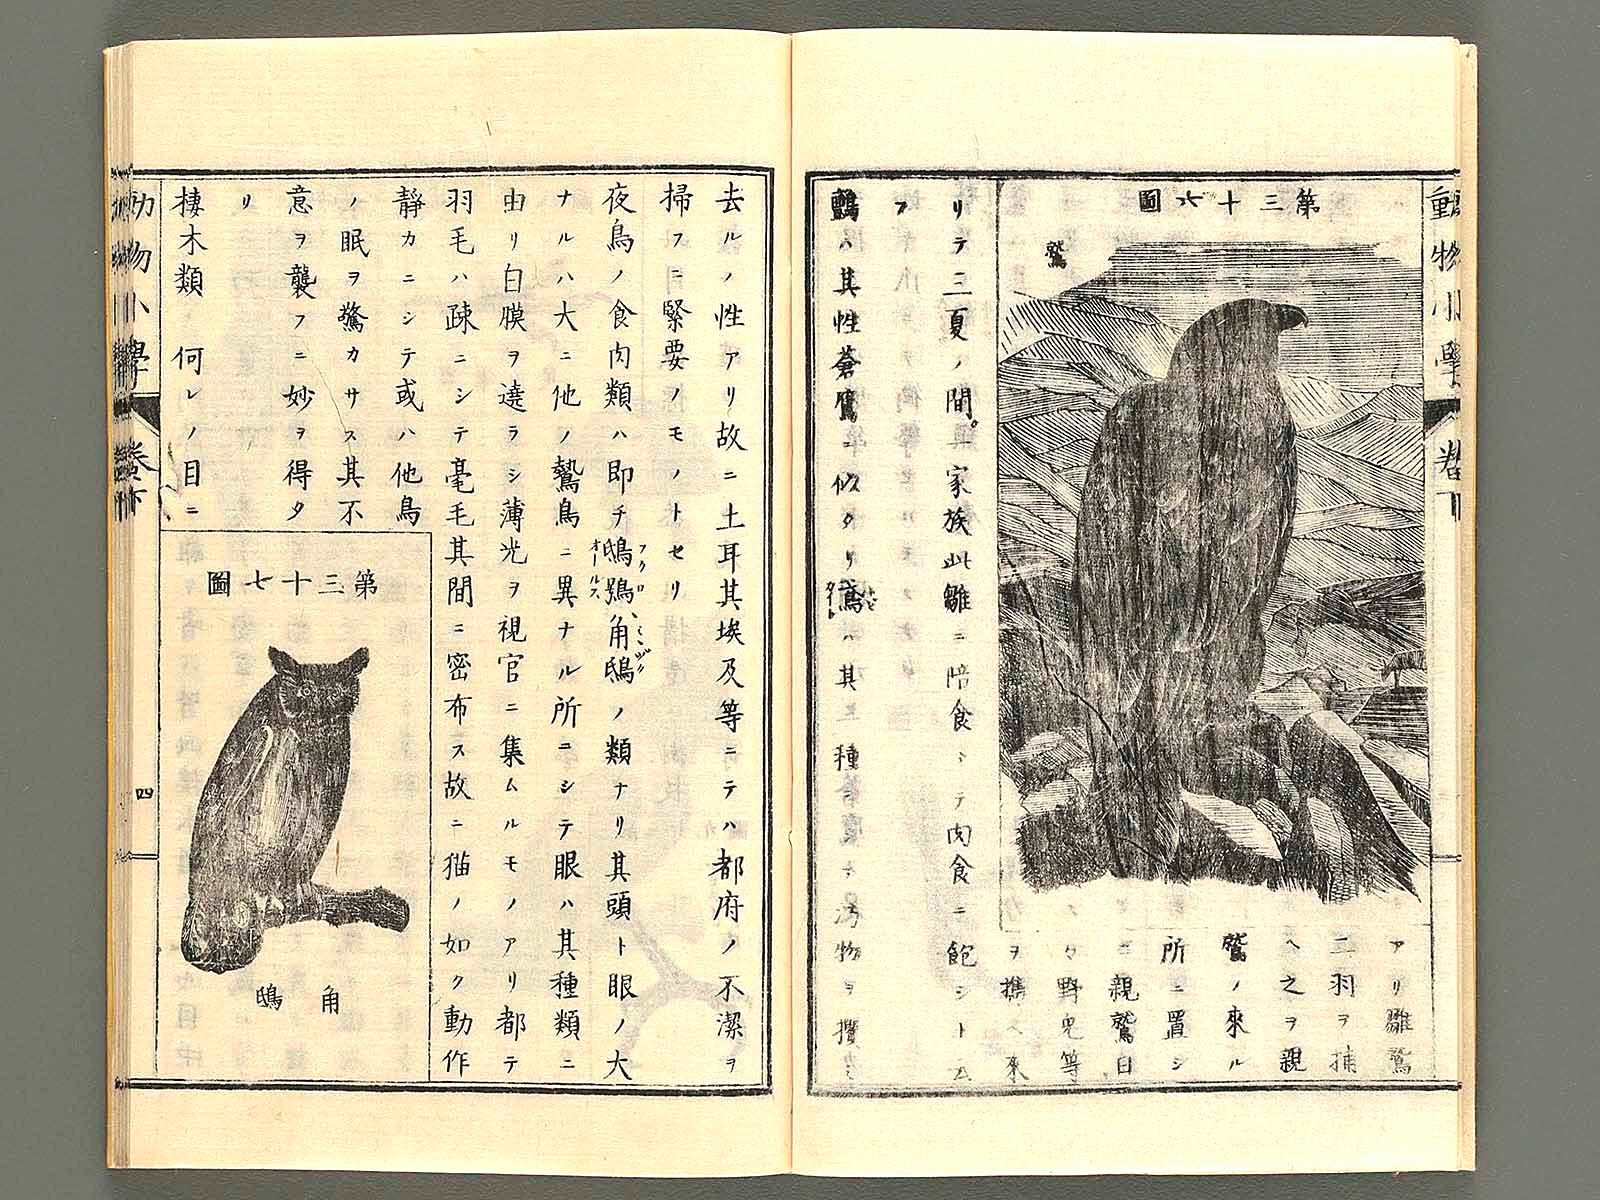 動物小學 卷下
第三十六圖
鷲
アリ雛鷲
二羽ヲ捕
ヘ之ヲ親
鷲ノ來ル
所ニ置シ
ニ親鷲日
々野兎等
ヲ攜ヘ來
リテ三夏ノ間。家族此雛ニ陪食シテ肉食ニ飽シト云
フ
鸇ハ其性蒼鷹ニ似タリ鳶ハ其三種ニ
物ヲ攫
去ルノ性アリ故ニ土耳其埃及等ニテハ都府ノ不潔ヲ
掃フニ緊要ノモノトセリ
夜鳥ノ食肉類ハ即チ鴟鵂、角鴟ノ類ナリ其頭ト眼ノ大
ナルハ大ニ他ノ鷙鳥ニ異ナル所ニシテ眼ハ其種類ニ
由リ白膜ヲ遶ラシ薄光ヲ視官ニ集ムルモノアリ都テ
羽毛ハ疎ニシテ毫毛其間ニ密布ス故ニ猫ノ如ク動作
靜カニシテ或ハ他鳥
ノ眠ヲ驚カサス其不
意ヲ襲フニ妙ヲ得タ
リ
棲木類 何レノ目ニ
第三十七圖
角鴟
動物小學 卷下
四